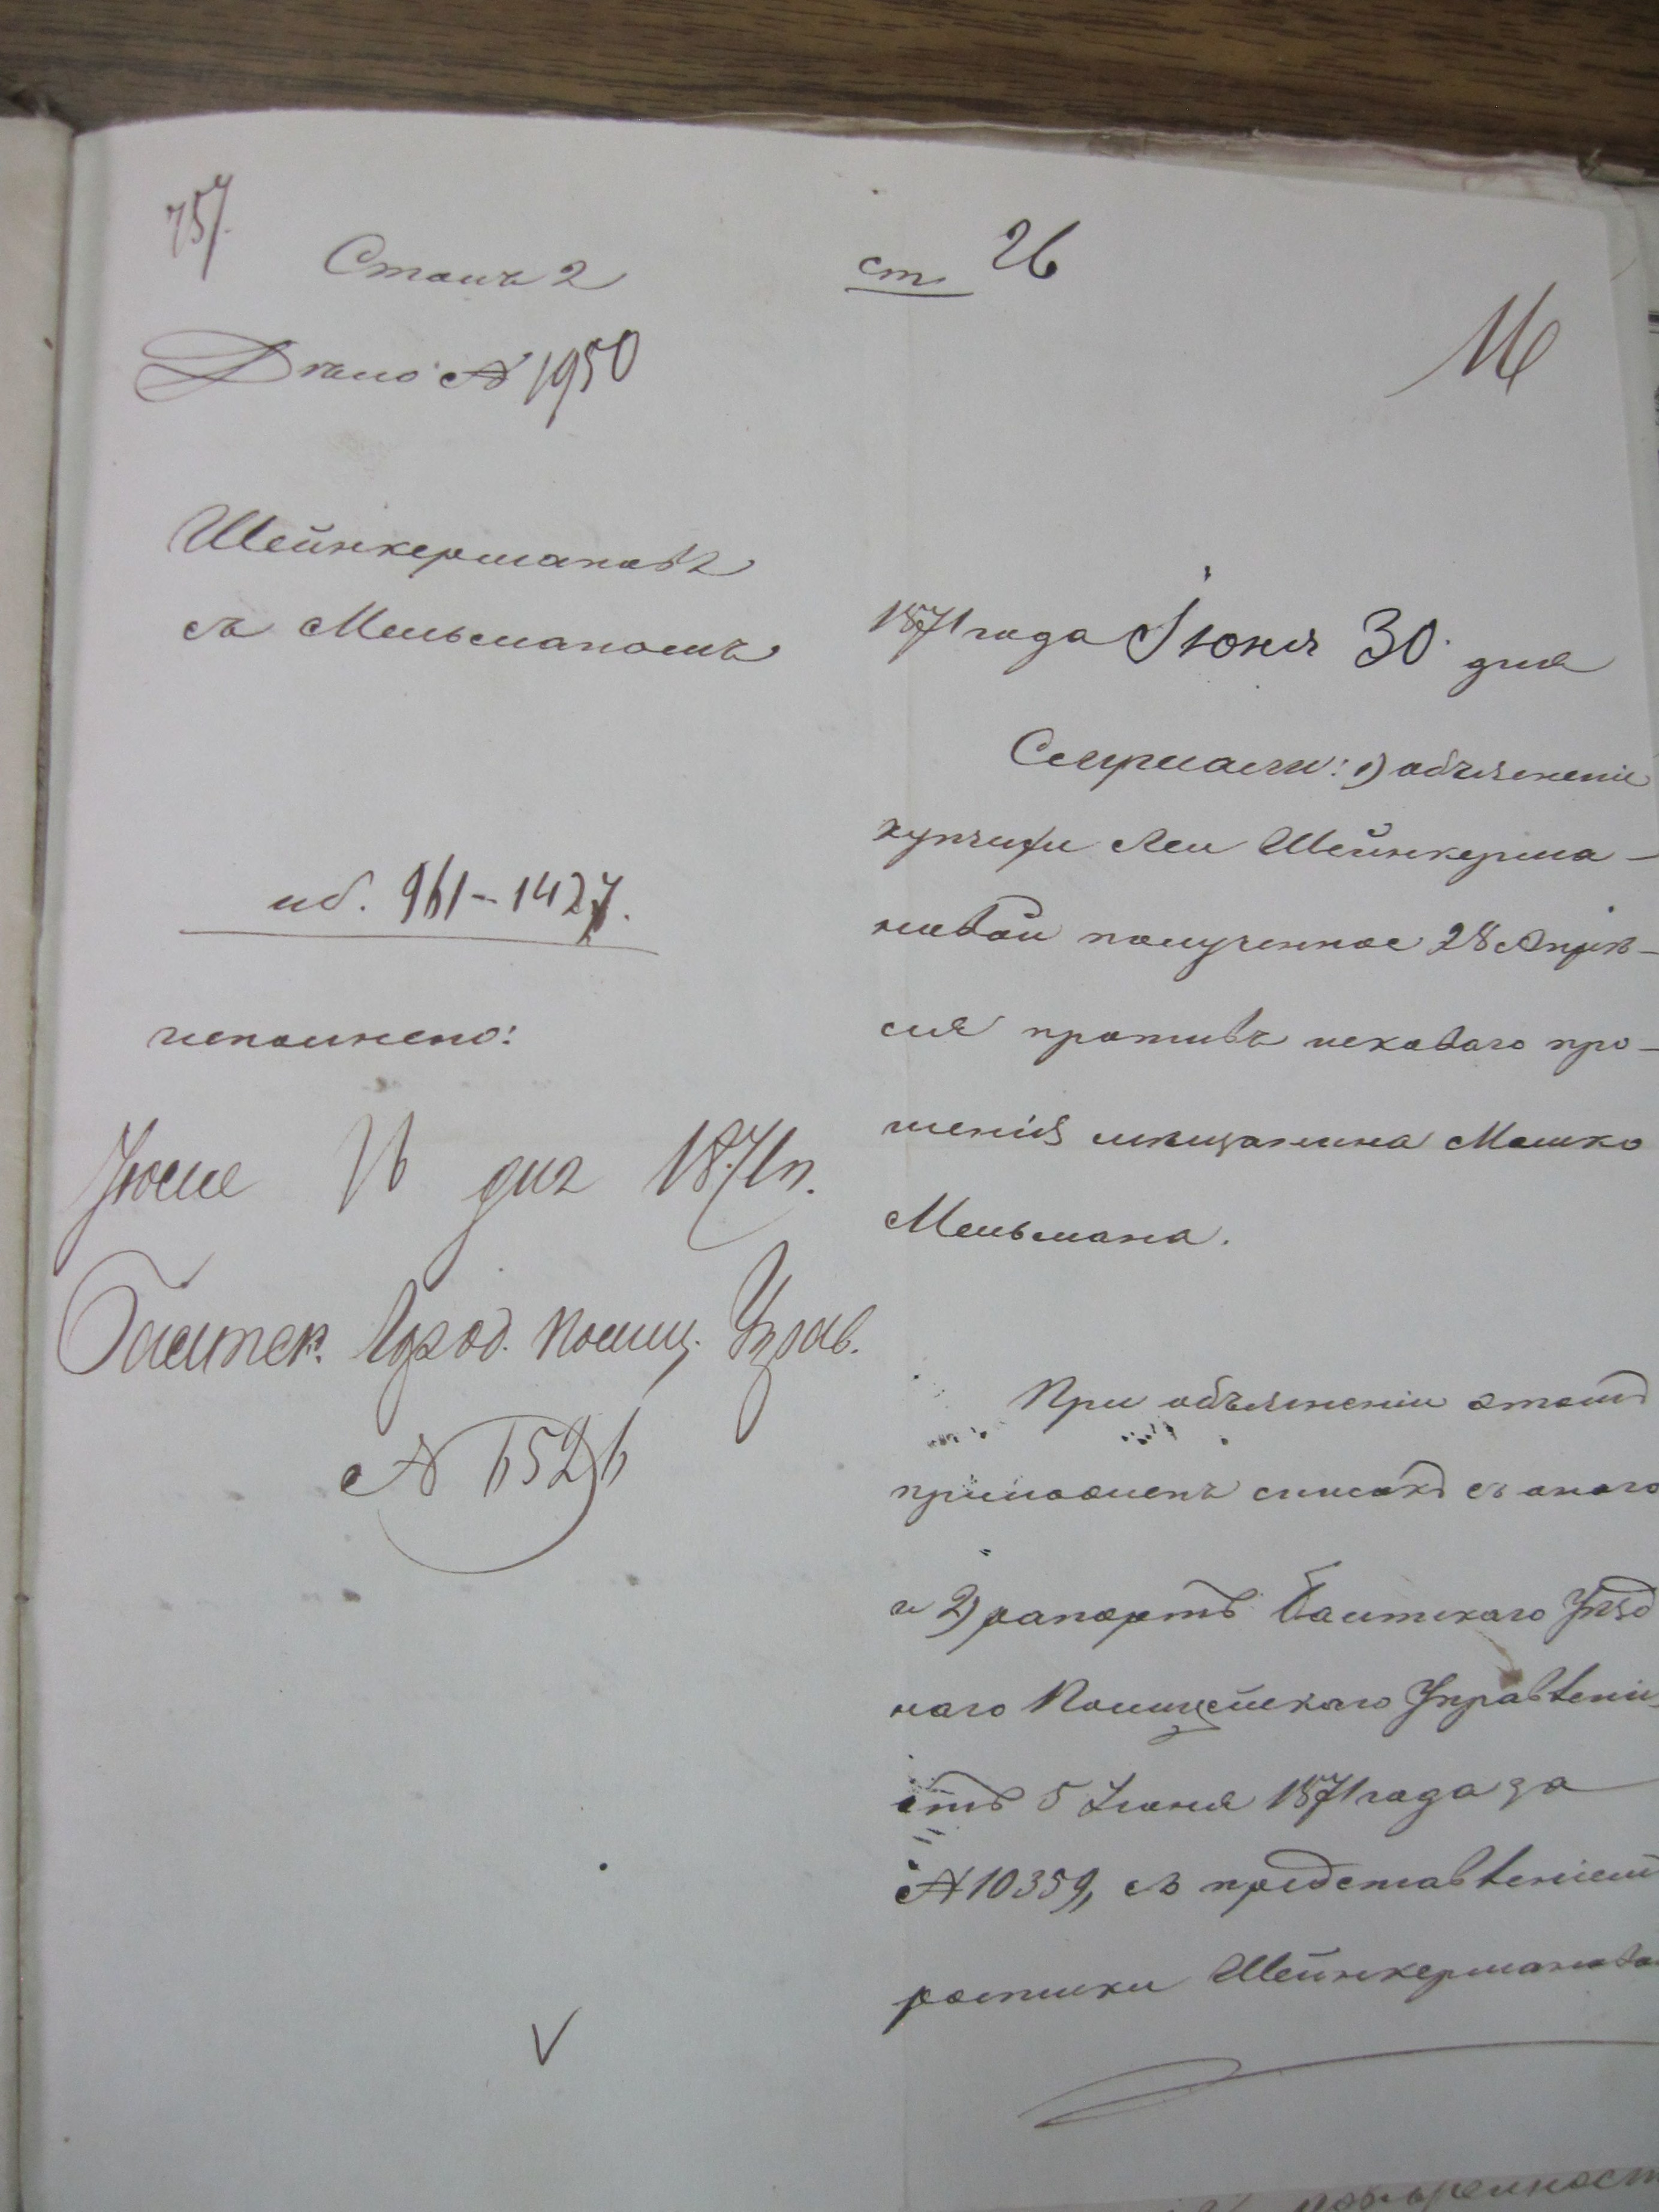 757.
Столъ 2
ст 26
Дѣло № 1950
Шейнкермановъ
съ Мельманомъ
1871 года Іюня 30 дня
Слушали: 1) объясненіе
купчихи Леи Шейнкерма-
новой полученное 28 Апрѣ-
ля противъ исковаго про-
шенія мѣщанина Мошко
Мельмана.
нб. 961-1427.
исполнено:
дня 1871 г.
Балтск. Город. Полиц. Управ.
№ 6526
При объясненіи этомъ
приложенъ списокъ съ онаго
и 2) рапортъ Балтскаго Уѣзд
наго Полицейскаго Управлені
отъ 5 Іюня 1871 года за
№ 10359, съ представленіемъ
росписки Шейнкермановой